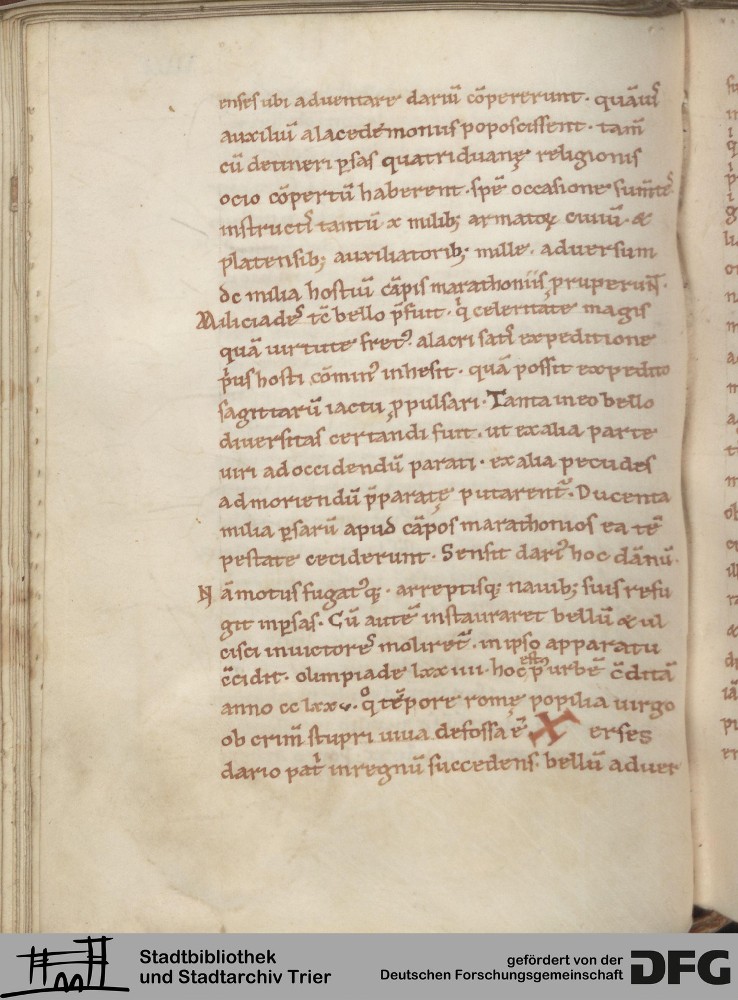 enses ubi adventare dariū cōpererunt · quāuis̄
auxiliū a lacedemonus poposcissent · tam̄
cū detineri ꝑsas quatriduanę religionis
ocio cōpertū haberent · spē occasione sumt̄e
instructi tantū x milib; armatoꝝ ciuiū · &
platensib; auxiliatorib; mille · adversum
dc milia hostiū cāpis marathoniis pruperuN̄ ·
Miliciades tc̄ bello p̄fuit · q̇ celeritate magis
quā uirtute fretꝰ · alacri satis expeditione
p̓us hosti cōminꝰ inhesit · quā possit expedito
sagittarū iactu ꝓpulsari · Tanta in eo bello
diversitas certandi fuit · ut ex alia parte
uiri ad occidendū parati · ex alia pecudes
ad moriendū p̄paratę putarent᷑ · Ducenta
milia ꝑsarū apud cāpos marathonios ea tē
pestate ceciderunt · Sensit dariꝰ hoc dānū ·
N āmotus fugatꝰq; · arreptisq; nauib; suis refu
git in ꝑsas · Cū autē instauraret bellū & ul
cisci in uictores moliret᷑ · in ipso apparatu
c̄cidit · olimpiade lxxiiii · hoc est p̄ urbē c̄ditā
anno cclxxv · qͦ tēpore romę popilia uirgo
ob crim̄ stupri uiua defossa ē Xerses
dario pat̓ in regnū succedens · bellū aduer
Stadtbibliothek
und Stadtarchiv Trier
gefördert von der
Deutschen Forschungsgemeinschaft
DFG